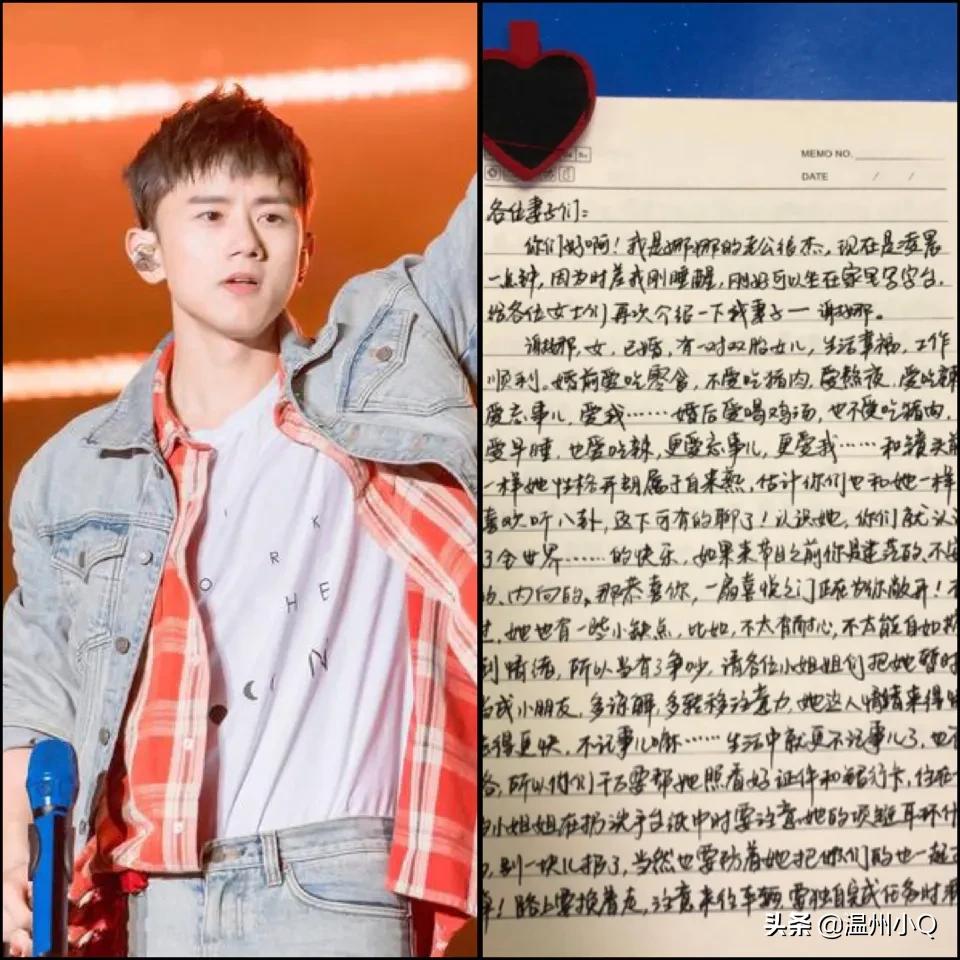 MEMO NO.
DATE / /
各位妻子们:
你们好啊!我是娜娜的老公张杰,现在是凌晨
一点钟,因为时差我刚睡醒,刚好可以坐在家里写字台,
给各位女士们再次介绍一下我妻子一谢娜。
谢娜,女,已婚,有一对双胞女儿,生活幸福,工作
顺利。婚前爱吃零食,不爱吃猪肉,爱熬夜,爱吃辣
爱忘事儿,爱我……婚后爱喝鸡汤,也不爱吃猪肉,
爱早睡,也爱吃辣,更爱忘事儿,更爱我……和镜头前
一样她性格开朗属于自来熟,估计你们也和她一样
喜欢听八卦,这下可有的聊了!认识她,你们就认识
了全世界……的快乐,如果来节目之前你是迷茫的、不安
的、内向的,那恭喜你,一扇喜悦之门正在为你敞开!不
过,她也有一些小缺点,比如,不太有耐心,不太能自如控
到情绪,所以当有了争吵,请各位小姐姐们把她暂时
当成小朋友,多谅解,多转移注意力,她这人情绪来得快
去得更快,不记事儿嘛……生活中就更不记事儿了,也
所以你们千万要帮她照看好证件和银行卡,住在一
的小姐姐在扔洗手台纸巾时要注意她的项链耳环什
别一块儿扔了,当然也要防着她把你们的也一起
路上要挨着走,注意来往车辆,要独自完成任务时
I
K
O
R
H E
N
头条 @温州小Q